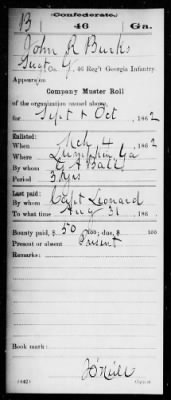 (Confederate.)
B 46 Ga.
John R Burks
Co. , 46 Reg't Georgia Infantry.
Appears on
Company Muster Roll
of the organization named above,
for Sept & Oct, 1862
Enlisted:
When Mch 4, 1862
Where Lumpkin, Ga
By whom Bates
Period 3 yrs
Last paid:
By whom Capt Leonard
To what time Aug 31, 186
Bounty paid, $ 50 /100; due, $ /100
Present or absent Present
Remarks:
Book mark:
(642) Copyist.